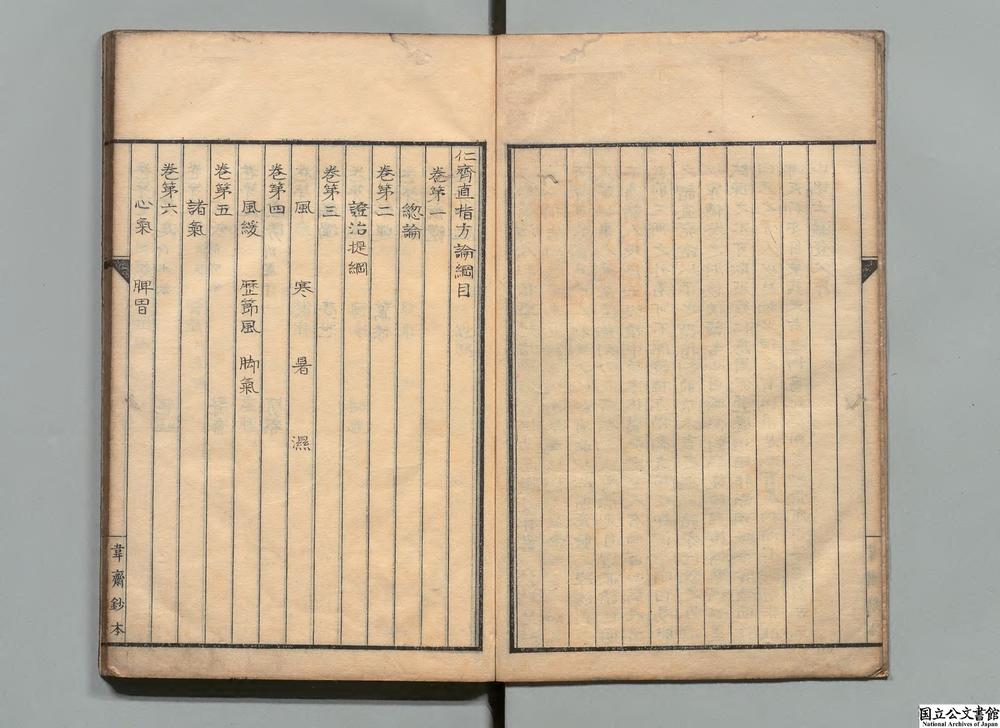 仁齊直指方論綱目
巻第一
緫論
巻第二
證治提綱
巻第三
風 寒 暑 濕
巻第四
風緩 歴節風 脚氣
巻第五
諸氣
巻第六
心氣 脾胃
韋齋鈔本
国立公文書館
National Archives of Japan